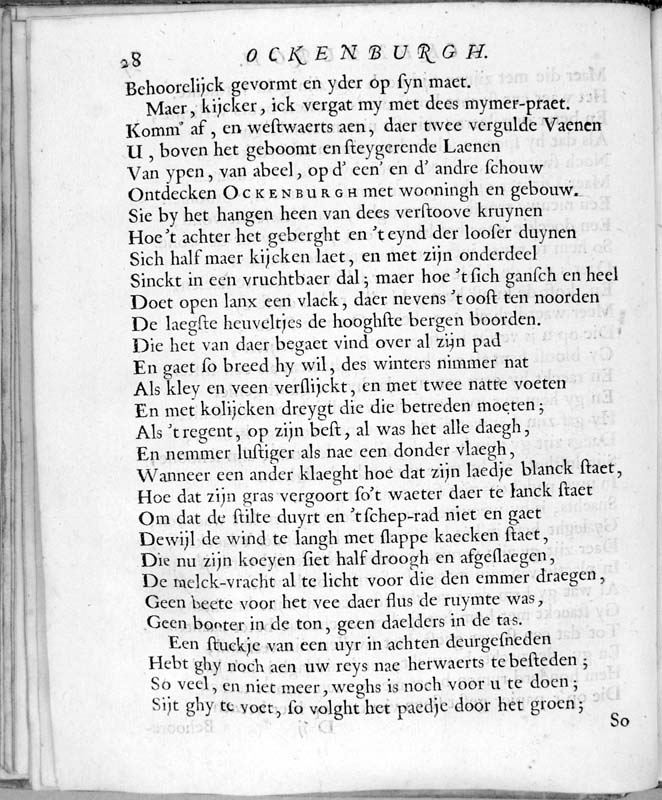 28 OCKENBURGH.
Behoorelijck gevormt en yder op ſyn maet.
Maer, kijcker, ick vergat my met dees mymer-praet.
Komm' af, en weſtwaerts aen, daer twee vergulde Vaenen
U, boven het geboomt en ſteygerende Laenen
Van ypen, van abeel, op d' een' en d' andre ſchouw
Ontdecken OCKENBURGH met wooningh en gebouw.
Sie by het hangen heen van dees verſtoove kruynen
Hoe 't achter het geberght en 't eynd der looſer duynen
Sich half maer kijcken laet, en met zijn onderdeel
Sinckt in een vruchtbaer dal; maer hoe 't ſich ganſch en heel
Doet open lanx een vlack, daer nevens 't ooſt ten noorden
De laegſte heuveltjes de hooghſte bergen boorden.
Die het van daer begaet vind over al zijn pad
En gaet ſo breed hy wil, des winters nimmer nat
Als kley en veen verſlijckt, en met twee natte voeten
En met kolijcken dreygt die die betreden moeten;
Als 't regent, op zijn beſt, al was het alle daegh,
En nemmer luſtiger als nae een donder vlaegh,
Wanneer een ander klaeght hoe dat zijn laedje blanck ſtaet,
Hoe dat zijn gras vergoort ſo't waeter daer te lanck ſtaet
Om dat de ſtilte duyrt en 't ſchep-rad niet en gaet
Dewijl de wind te langh met ſlappe kaecken ſtaet,
Die nu zijn koeyen ſiet half droogh en afgeſlaegen,
De melck-vracht al te licht voor die den emmer draegen,
Geen beete voor het vee daer flus de ruymte was,
Geen booter in de ton, geen daelders in de tas.
Een ſtuckje van een uyr in achten deurgeſneden
Hebt ghy noch aen uw reys nae herwaerts te beſteden;
So veel, en niet meer, weghs is noch voor u te doen;
Sijt ghy te voet, ſo volght het paedje door het groen;
So